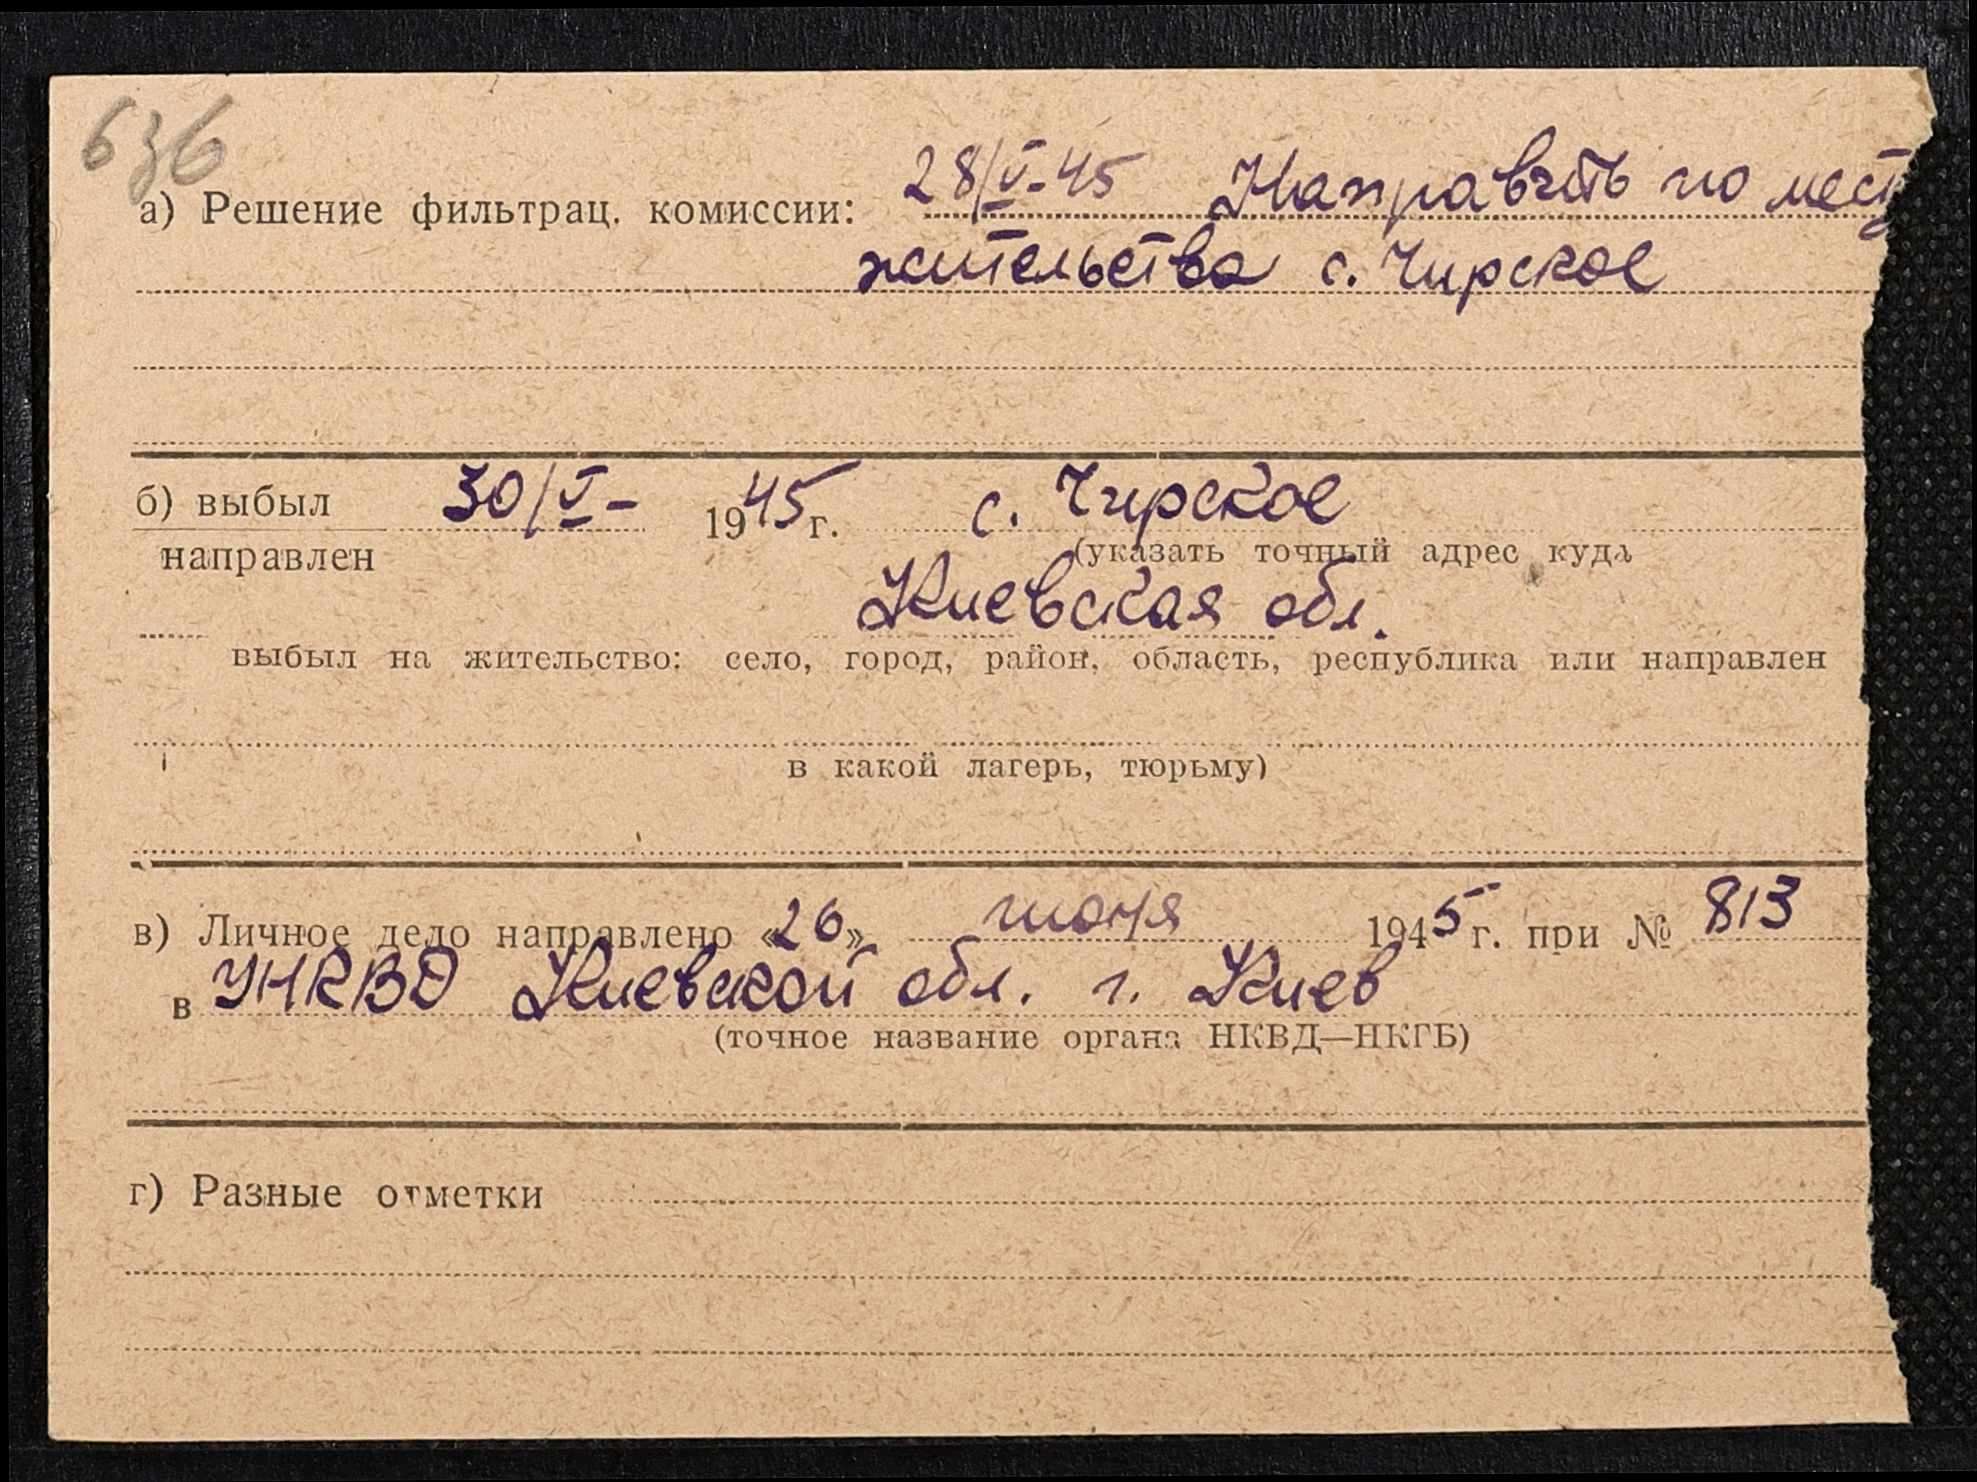 636
а) Решение фильтрац. комиссии: 28/V-45 Направить по мест
жительства с. Чирское
б) выбыл 30/V- 1945 г. с. Чирское
направлен (указать точный адрес куда
Киевская обл.
выбыл на жительство: село, город, район, область, республика или направлен
в какой лагерь, тюрьму)
в) Личное дело направлено «26» июня 1945 г. при № 813
в УНКВД Киевской обл. г. Киев
(точное название органа НКВД—НКГБ)
г) Разные отметки